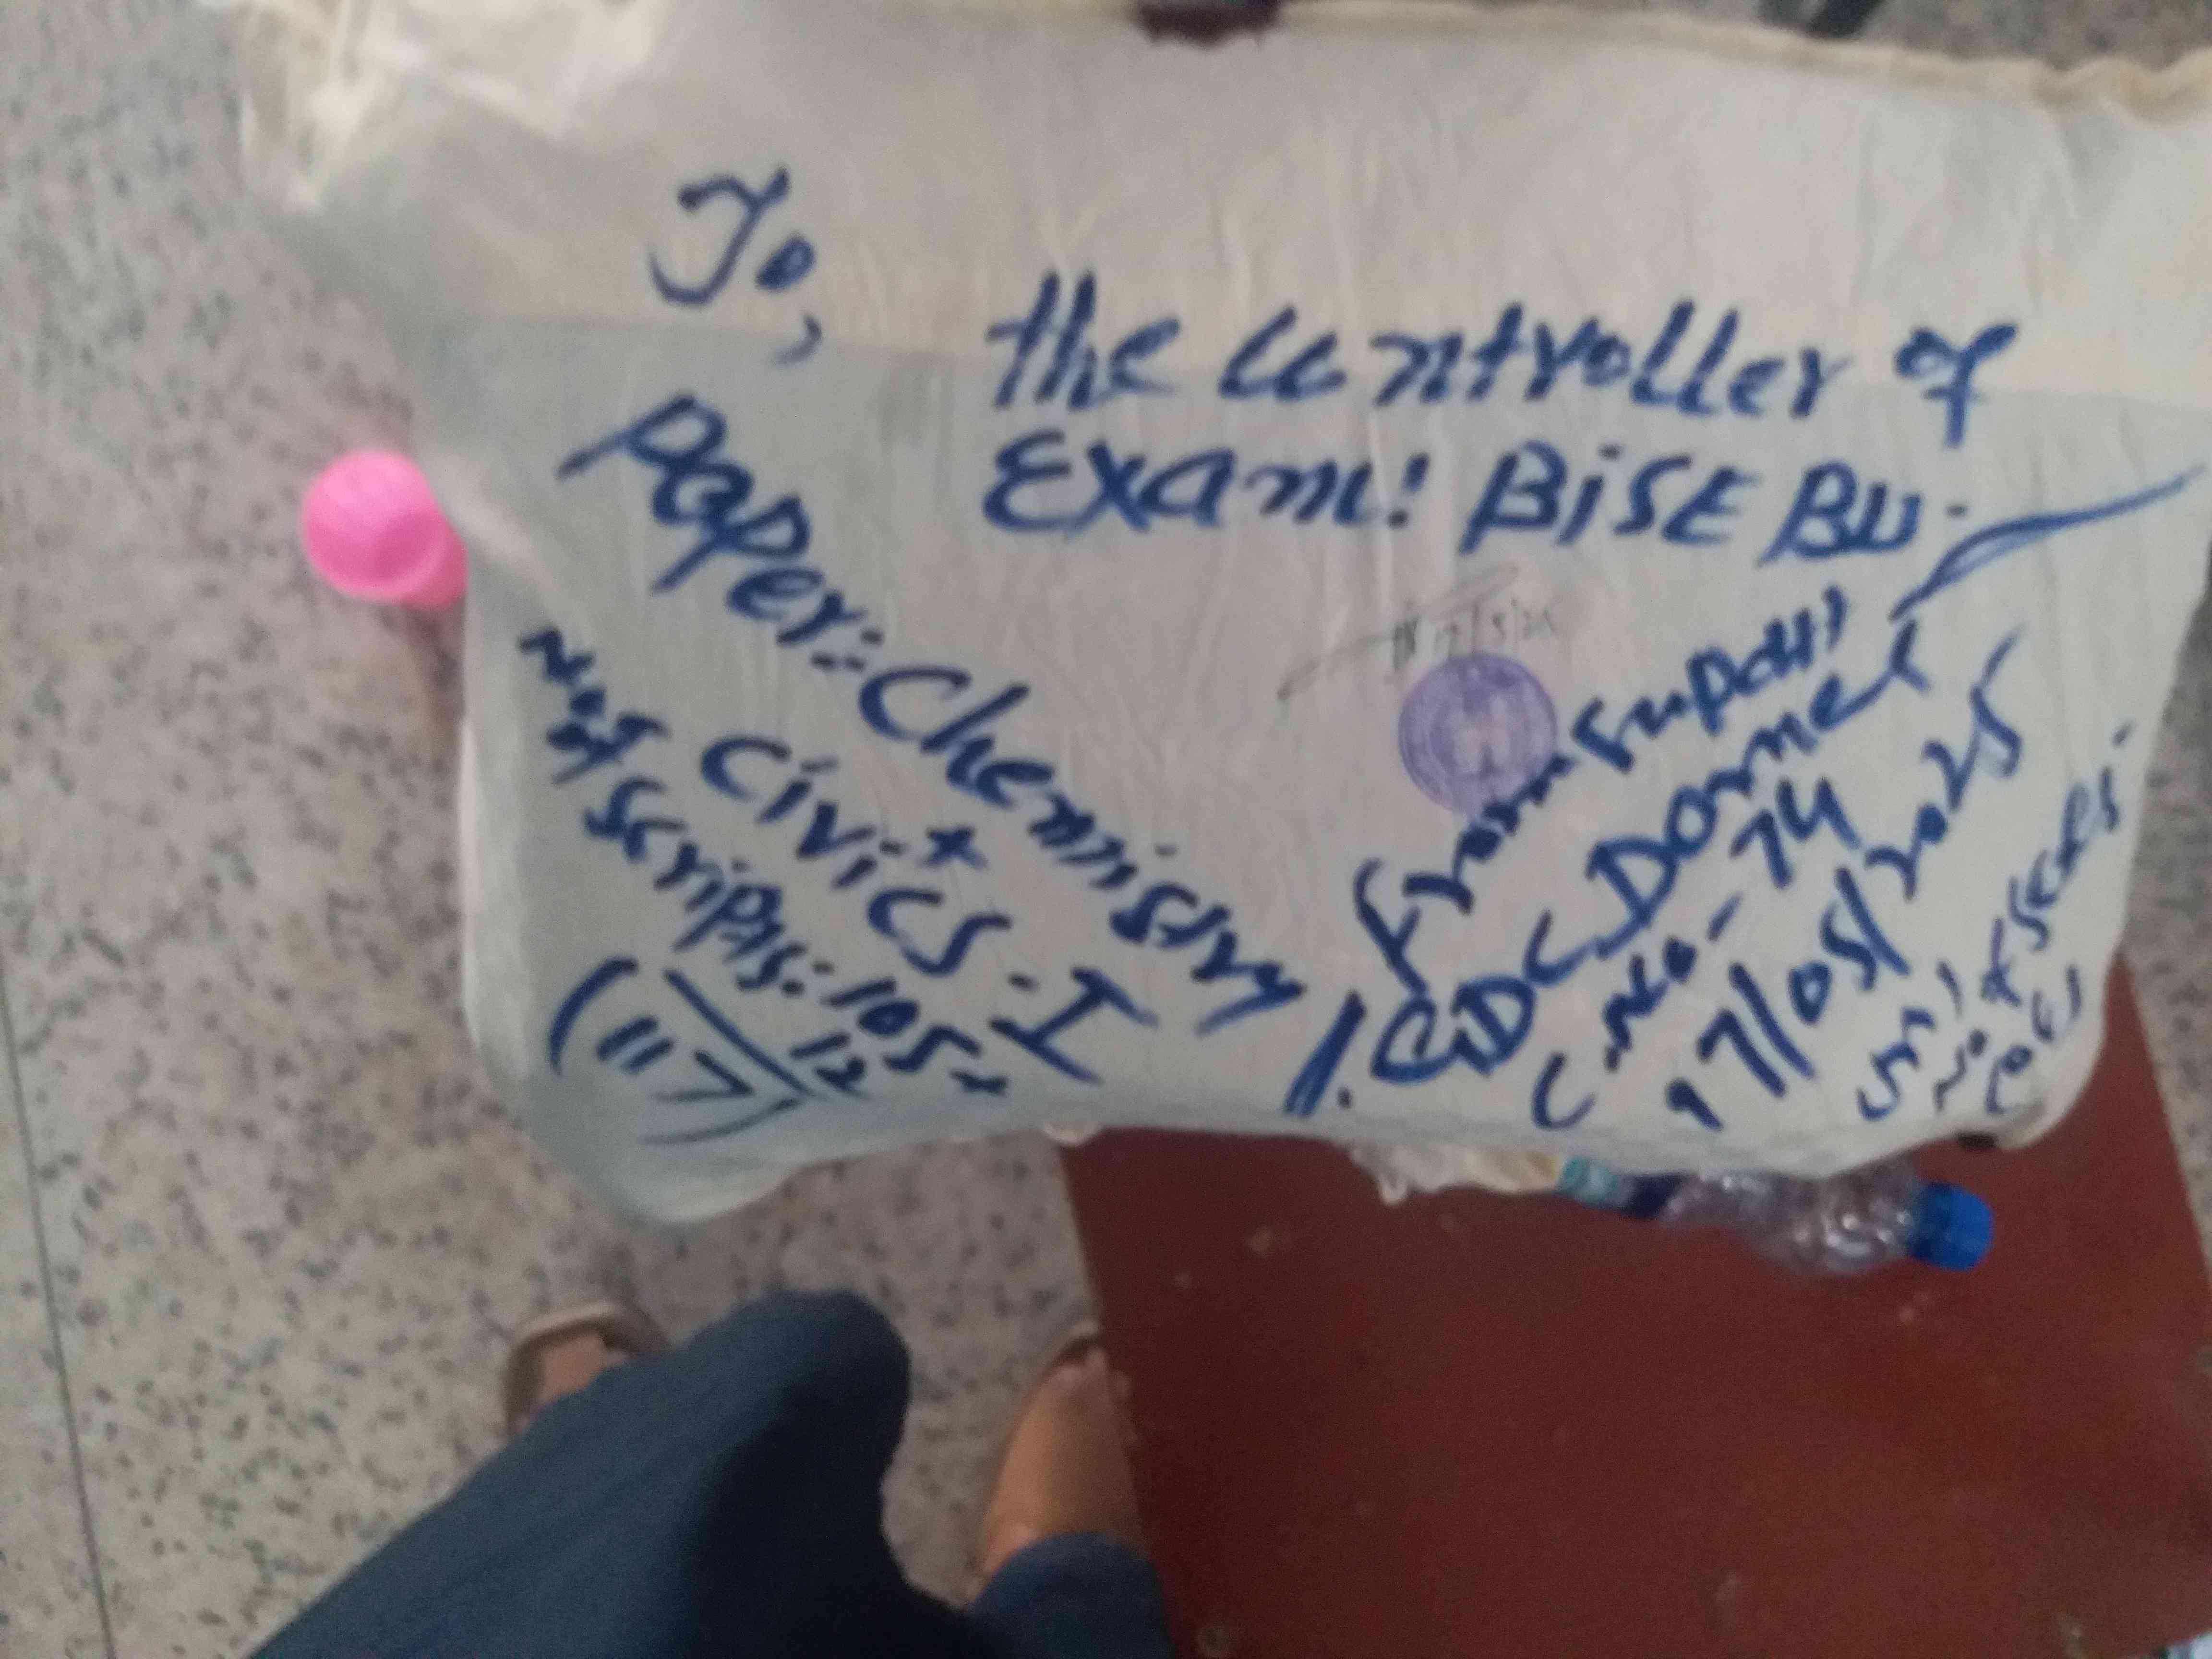 To,
the Controller of
Exam: BISE BU.
Paper:- Chemistry
+
Civics - I
No of Scripts:- 105+
12
(117)
From Supdtt
GDC Domel
C. No - 74
17/05/2025
No of Seals: